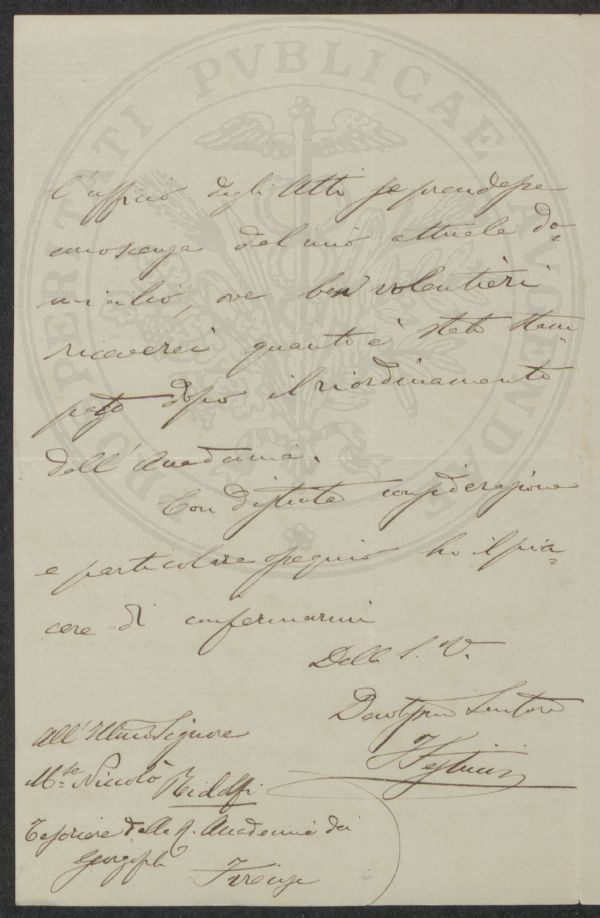 PROSPERITATI PVBLICAE AVGENDAE
l'ufficio degli Atti se prendesse
conoscenza del mio attuale do=
micilio, ove ben volentieri
riceverei quanto è stato stam
pato dopo il riordinamento
dell'Accademia.
Con distinta considerazione
e particolare ossequio ho il pia=
cere di confermarmi
Della S. V.
Devotmo Servitore
All'Illmo Signore
Mse. Niccolò Ridolfi
Tesoriere della R. Accademia dei
Georgofili
Firenze